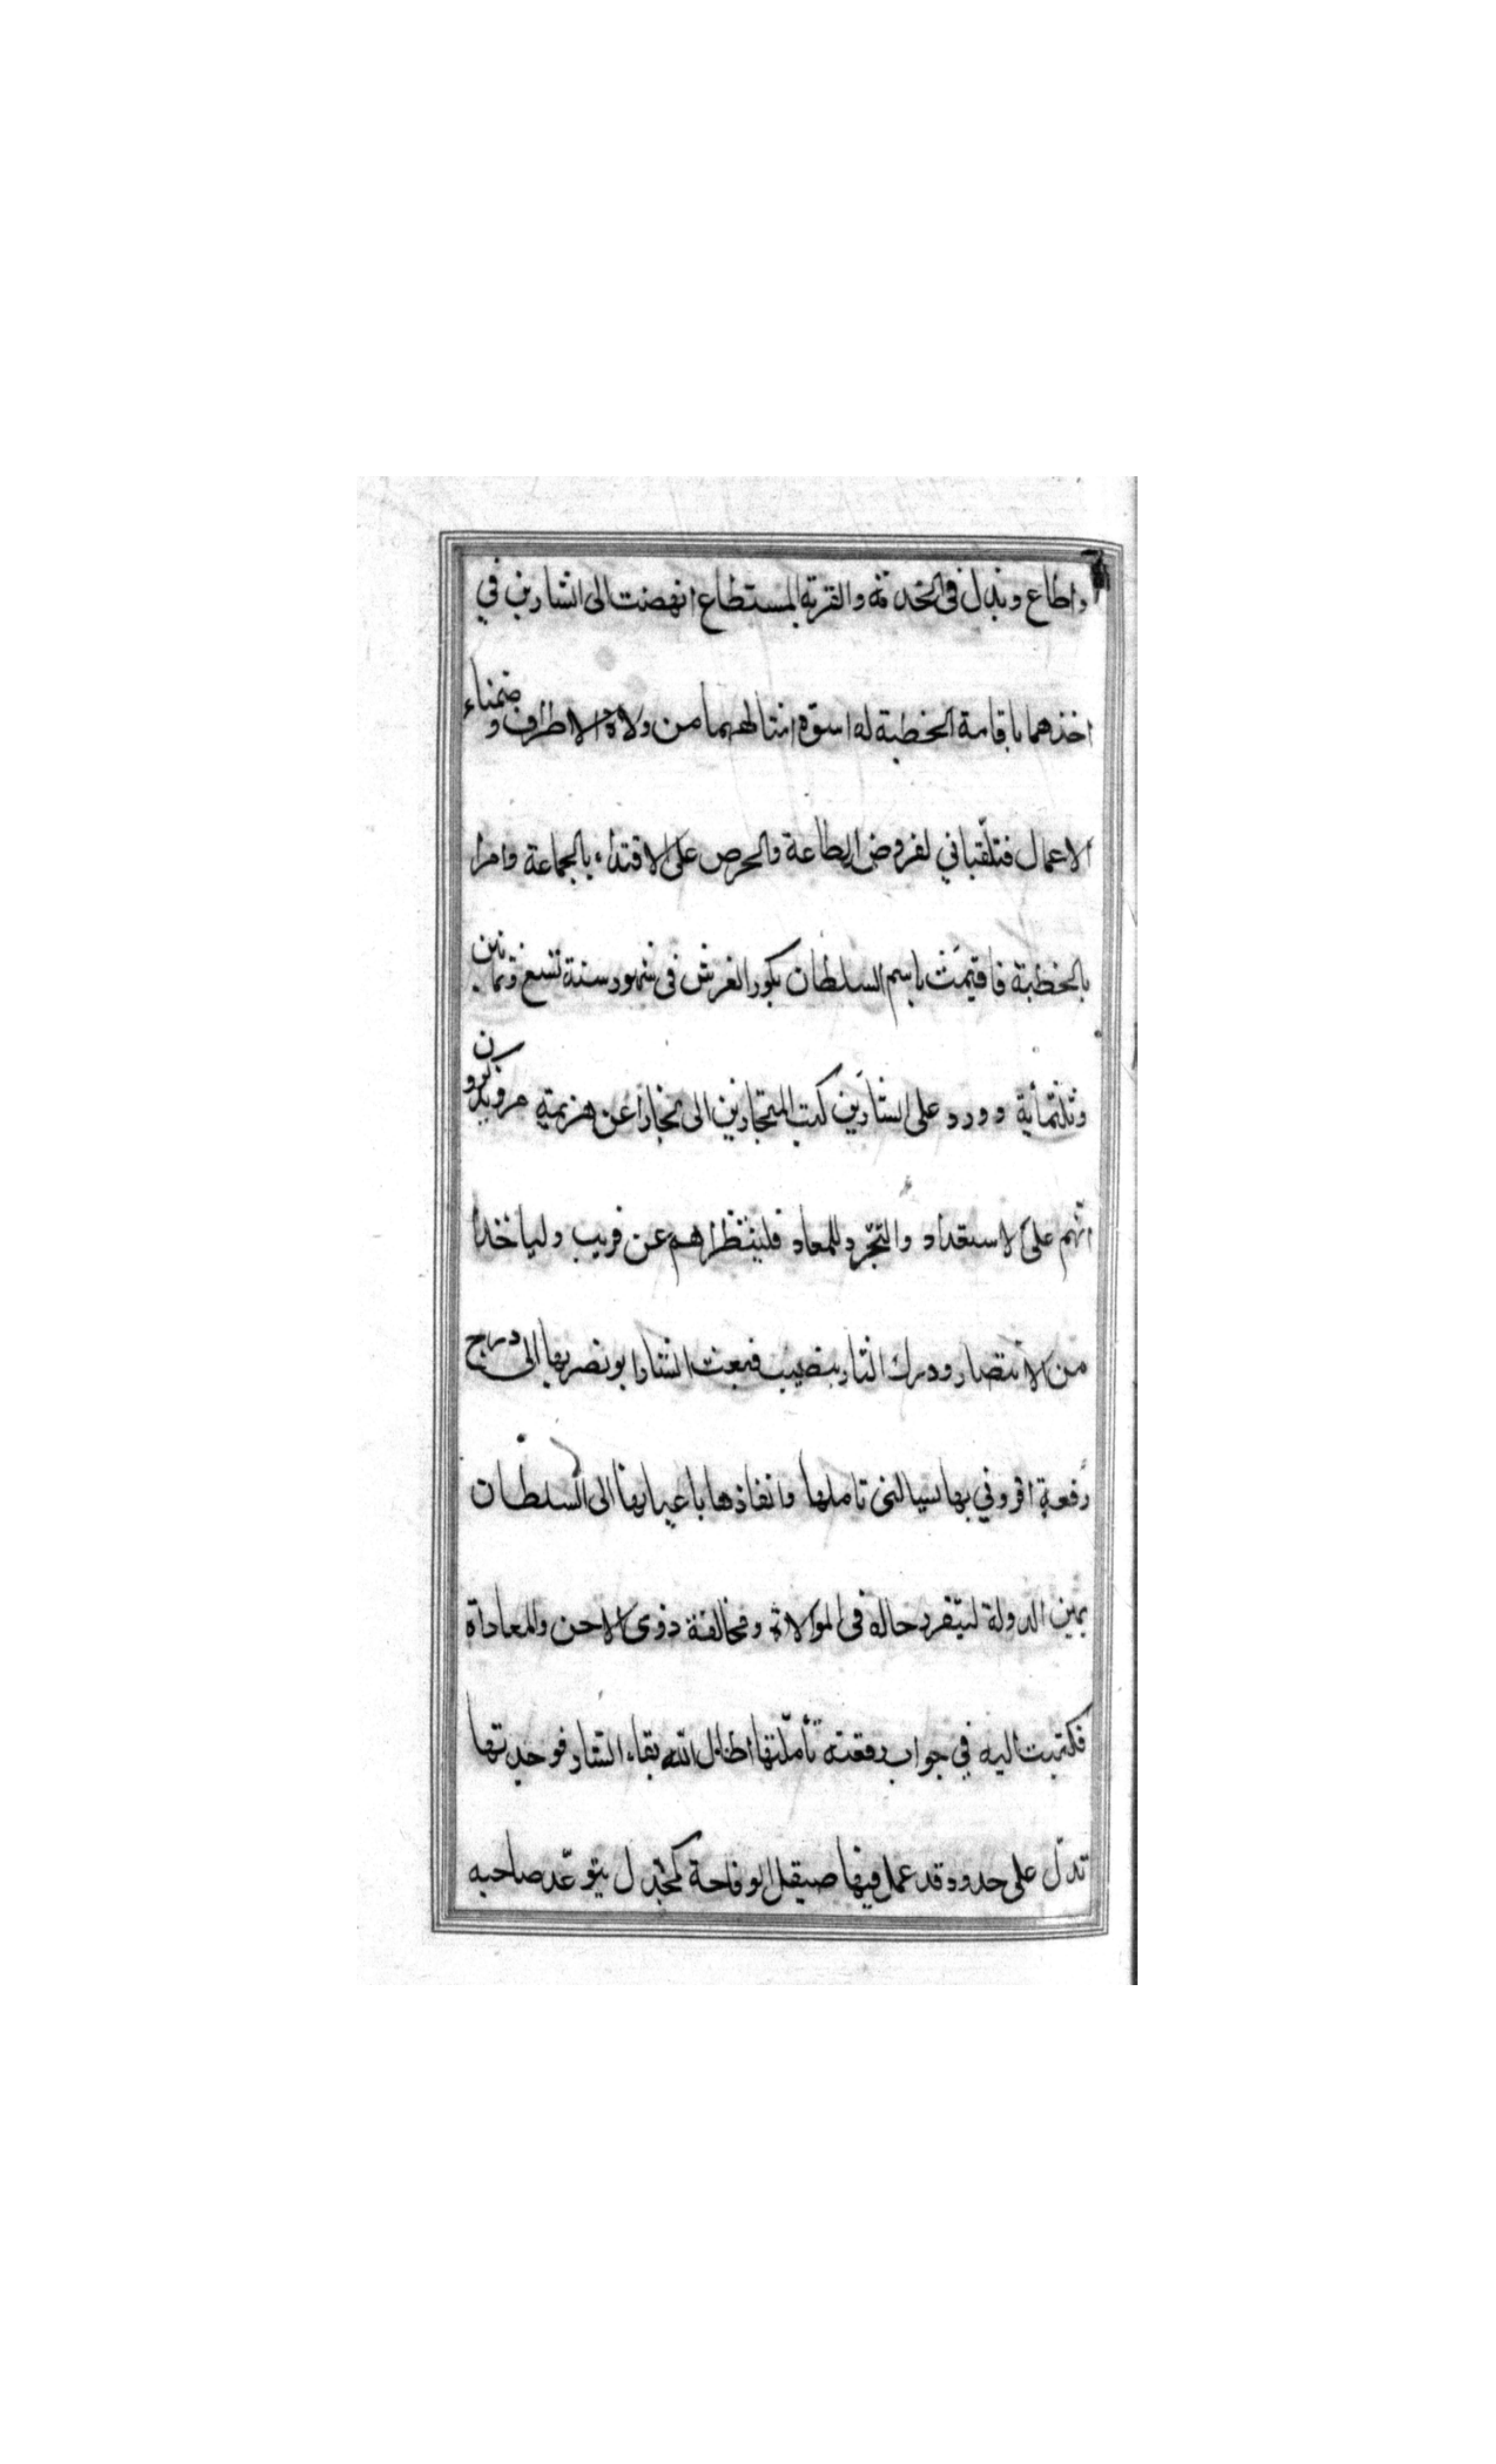 واطاع وبذل فى الخدمة والقربة المستطاع انهضت الى الشارين في
اخذهما باقامة الخطبة له اسوة امثالهما من ولاة الاطراف وضمناء
الاعمال فتلقياني لفروض الطاعة والحرص على الاقتداء بالجماعة وامرا
بالخطبة فاقيمت باسم السلطان بكور الغرش فى شهور سنة تسع وثمانين
وثلثمأية وورد على الشارين كتب المتجازين الى بخارا عن هزيمة مرو يذكرون
انهم على الاستعداد والتجرد للمعاد فلينتظراهم عن قريب ولياخذا
من الانتصار ودرك الثار بنصيب فبعث الشار ابو نصر بها الى درج
رقعة افردني بها يسالنى تاملها وانفاذها باعيانها الى السلطان
يمين الدولة ليتقرر حاله فى الموالاة ومخالفة ذوى الاحن والمعاداة
فكتبت اليه في جواب رقعته تأملتها اطال الله بقاء الشار فوجدتها
تدل على حدود قد عمل فيها صيقل الوقاحة كمجدل يتوعد صاحبه